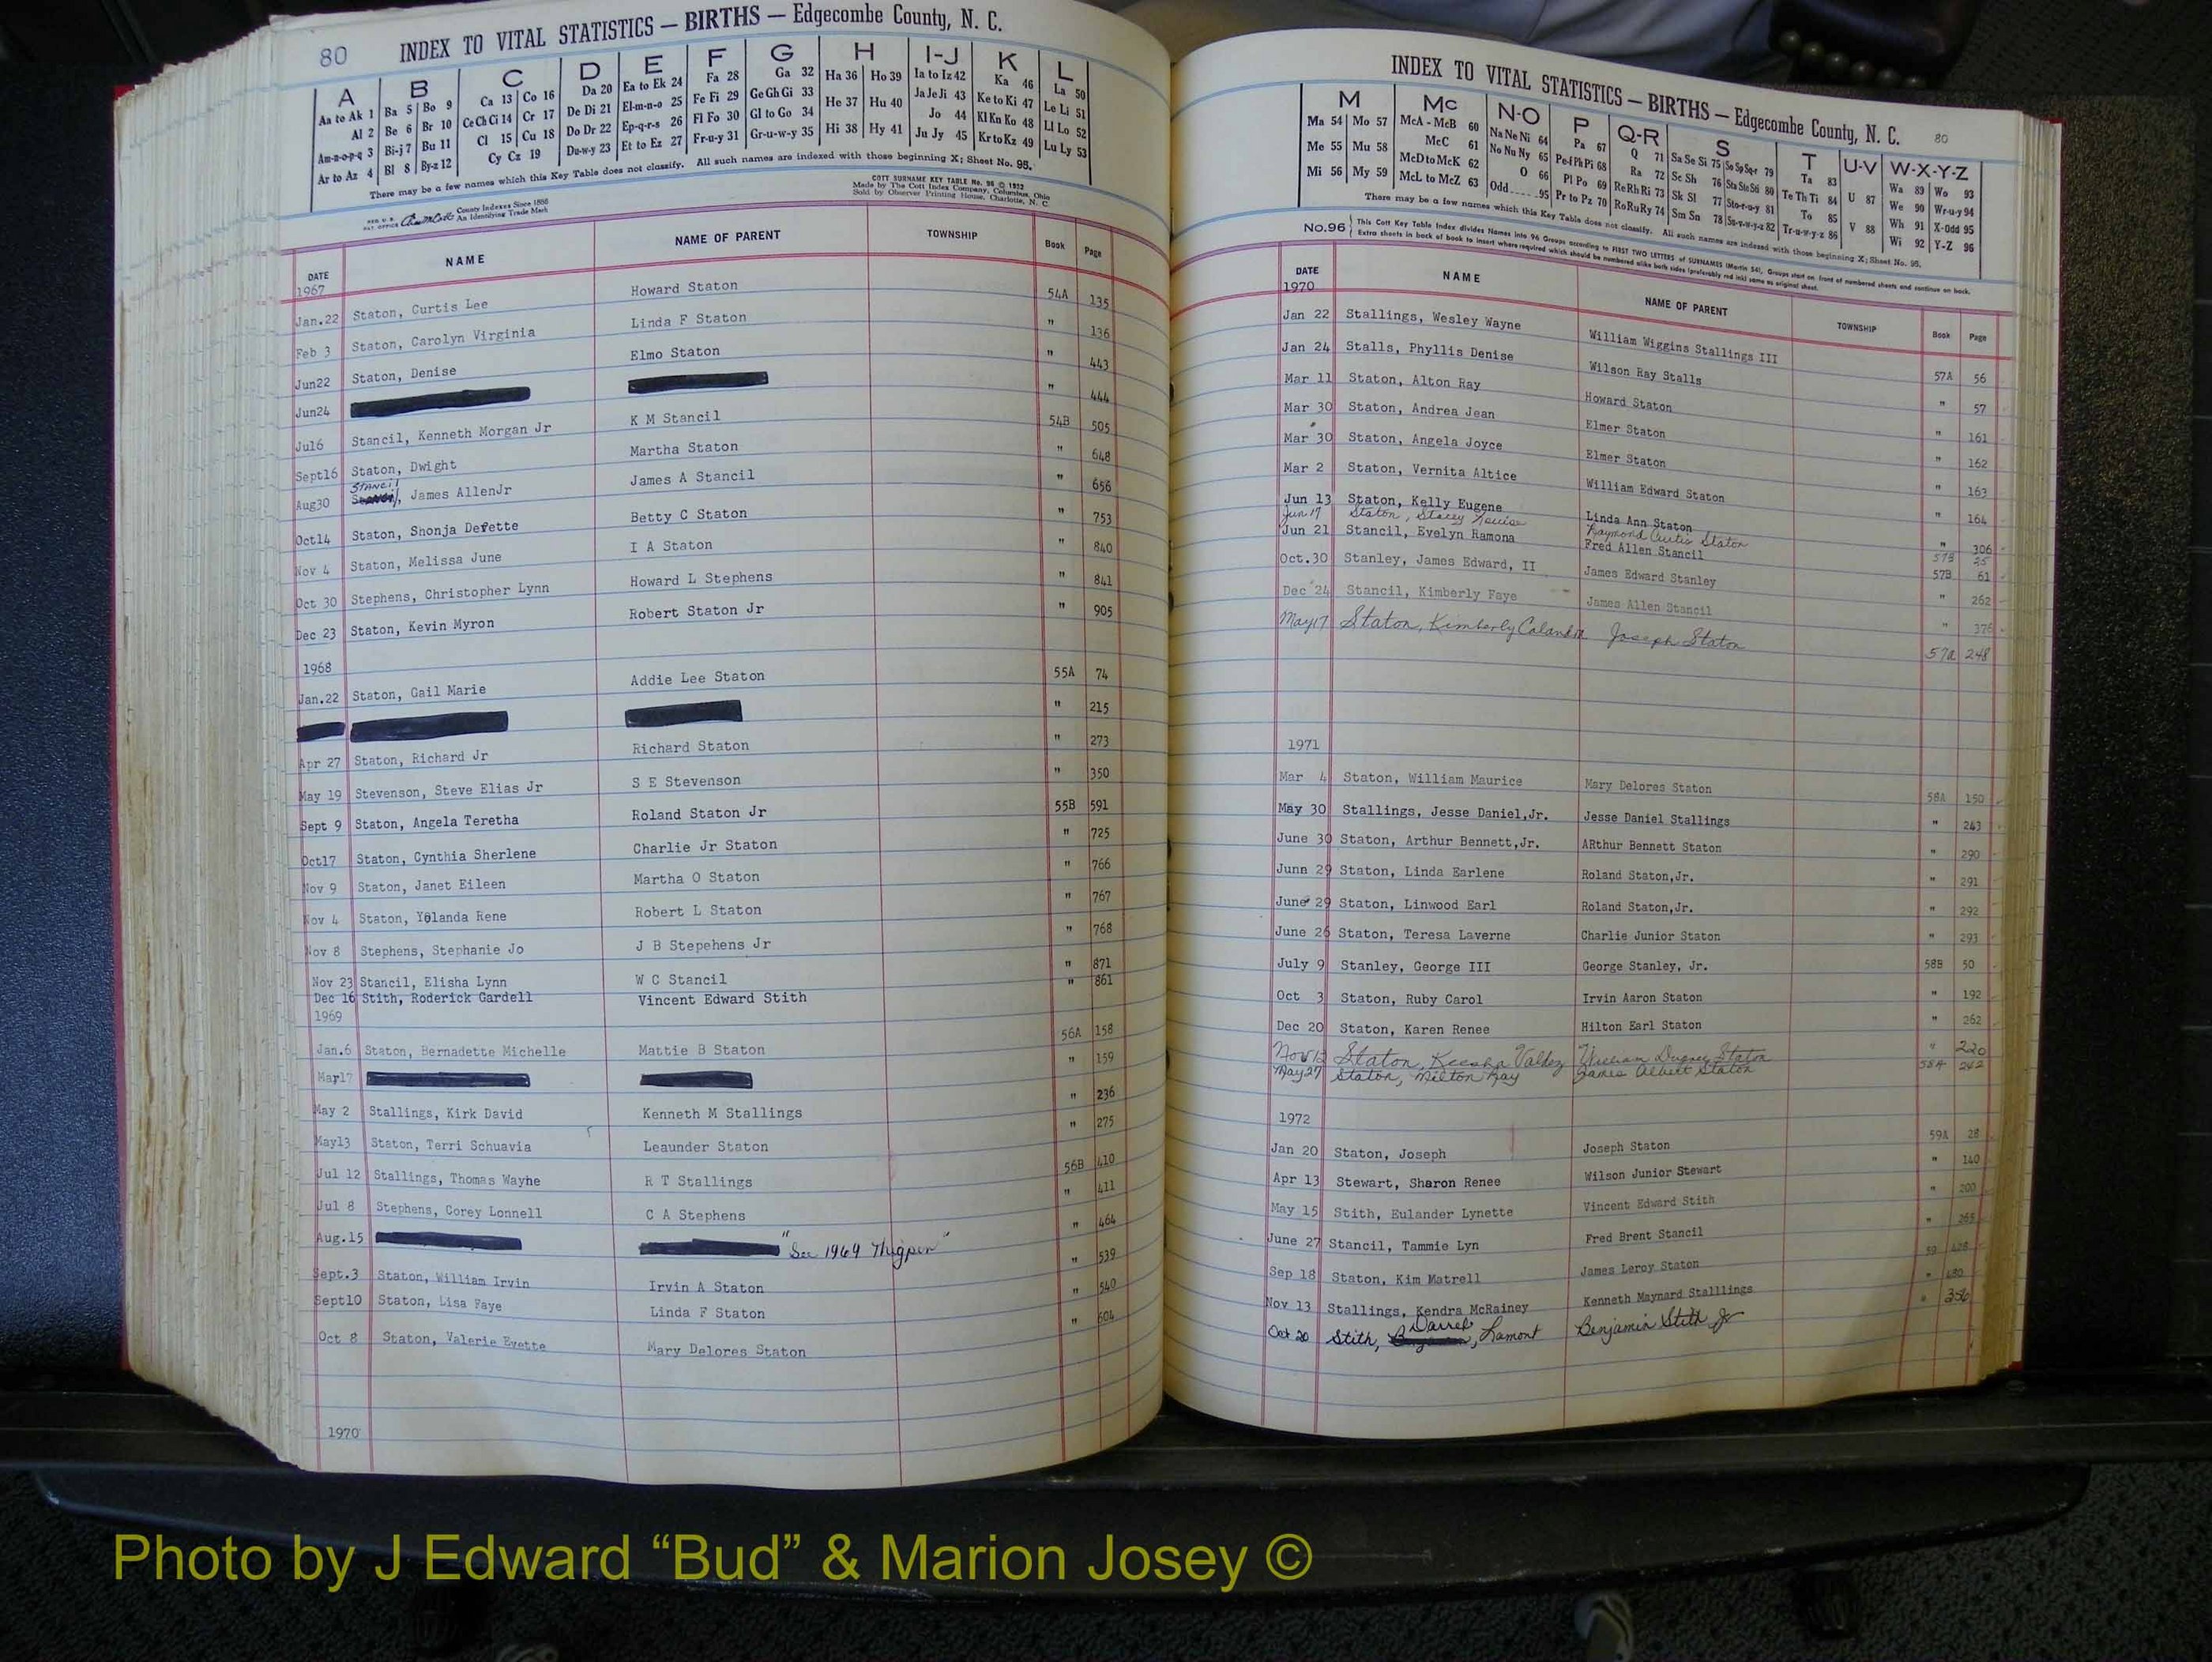 80 INDEX TO VITAL STATISTICS — BIRTHS — Edgecombe County, N. C.
A B C D E F G H I-J K L
Aa to Ak 1 Ba 5 Bo 9 Ca 13 Co 16 Da 20 Ea to Ek 24 Fa 28 Ga 32 Ha 36 Ho 39 Ia to Iz 42 Ka 46 La 50
Al 2 Be 6 Br 10 Ce Ch Ci 14 Cr 17 De Di 21 El-m-n-o 25 Fe Fi 29 Ge Gh Gi 33 He 37 Hu 40 Ja Je Ji 43 Ke to Ki 47 Le Li 51
Am-n-o-p-q 3 Bi-j 7 Bu 11 Cl 15 Cu 18 Do Dr 22 Ep-q-r-s 26 Fl Fo 30 Gl to Go 34 Hi 38 Hy 41 Jo 44 Kl Kn Ko 48 Ll Lo 52
Ar to Az 4 Bl 8 By-z 12 Cy Cz 19 Du-w-y 23 Et to Ez 27 Fr-u-y 31 Gr-u-w-y 35 Ju Jy 45 Kr to Kz 49 Lu Ly 53
There may be a few names which this Key Table does not classify. All such names are indexed with those beginning X; Sheet No. 95.
COTT SURNAME KEY TABLE No. 96 © 1952
Made by The Cott Index Company, Columbus, Ohio
Sold by Observer Printing House, Charlotte, N. C.
REG. U. S. PAT. OFFICE County Indexes Since 1888
An Identifying Trade Mark
DATE NAME NAME OF PARENT TOWNSHIP Book Page
1967
Jan.22 Staton, Curtis Lee Howard Staton 54A 135
Feb 3 Staton, Carolyn Virginia Linda F Staton " 136
Jun22 Staton, Denise Elmo Staton " 443
Jun24 " 444
Jul6 Stancil, Kenneth Morgan Jr K M Stancil 54B 505
Sept16 Staton, Dwight Martha Staton " 648
Stancil
Aug30 , James AllenJr James A Stancil " 656
Oct14 Staton, Shonja Defette Betty C Staton " 753
Nov 4 Staton, Melissa June I A Staton " 840
Oct 30 Stephens, Christopher Lynn Howard L Stephens " 841
Dec 23 Staton, Kevin Myron Robert Staton Jr " 905
1968
Jan.22 Staton, Gail Marie Addie Lee Staton 55A 74
" 215
Apr 27 Staton, Richard Jr Richard Staton " 273
May 19 Stevenson, Steve Elias Jr S E Stevenson " 350
Sept 9 Staton, Angela Teretha Roland Staton Jr 55B 591
Oct17 Staton, Cynthia Sherlene Charlie Jr Staton " 725
Nov 9 Staton, Janet Eileen Martha O Staton " 766
Nov 4 Staton, Yolanda Rene Robert L Staton " 767
Nov 8 Stephens, Stephanie Jo J B Stepehens Jr " 768
Nov 23 Stancil, Elisha Lynn W C Stancil " 871
Dec 16 Stith, Roderick Gardell Vincent Edward Stith " 861
1969
Jan.6 Staton, Bernadette Michelle Mattie B Staton 56A 158
Mar17 " 159
May 2 Stallings, Kirk David Kenneth M Stallings " 236
May13 Staton, Terri Schuavia Leaunder Staton " 275
Jul 12 Stallings, Thomas Wayne R T Stallings 56B 410
Jul 8 Stephens, Corey Lonnell C A Stephens " 411
Aug.15 "See 1969 Thigpen" " 464
Sept.3 Staton, William Irvin Irvin A Staton " 539
Sept10 Staton, Lisa Faye Linda F Staton " 540
Oct 8 Staton, Valerie Evette Mary Delores Staton " 604
1970
INDEX TO VITAL STATISTICS — BIRTHS — Edgecombe County, N. C. 80
M Mc N-O P Q-R S T U-V W-X-Y-Z
Ma 54 Mo 57 McA - McB 60 Na Ne Ni 64 Pa 67 Q 71 Sa Se Si 75 So Sp Sq-r 79 Ta 83 U 87 Wa 89 Wo 93
Me 55 Mu 58 McC 61 No Nu Ny 65 Pe-f Ph Pi 68 Ra 72 Sc Sh 76 Sta Ste Sti 80 Te Th Ti 84 V 88 We 90 Wr-u-y 94
Mi 56 My 59 McD to McK 62 O 66 Pl Po 69 Re Rh Ri 73 Sk Sl 77 Sto-r-u-y 81 To 85 Wh 91 X-Odd 95
McL to McZ 63 Odd 95 Pr to Pz 70 Ro Ru Ry 74 Sm Sn 78 Su-v-w-y-z 82 Tr-u-w-y-z 86 Wi 92 Y-Z 96
There may be a few names which this Key Table does not classify. All such names are indexed with those beginning X; Sheet No. 95.
No.96 This Cott Key Table Index divides Names into 96 Groups according to FIRST TWO LETTERS of SURNAMES (Martin 54). Groups start on front of numbered sheets and continue on back.
Extra sheets in back of book to insert where required which should be numbered alike both sides (preferably red ink) same as original sheet.
DATE NAME NAME OF PARENT TOWNSHIP Book Page
1970
Jan 22 Stallings, Wesley Wayne William Wiggins Stallings III 57A 56
Jan 24 Stalls, Phyllis Denise Wilson Ray Stalls " 57
Mar 11 Staton, Alton Ray Howard Staton " 161
Mar 30 Staton, Andrea Jean Elmer Staton " 162
Mar 30 Staton, Angela Joyce Elmer Staton " 163
Mar 2 Staton, Vernita Altice William Edward Staton " 164
Jun 13 Staton, Kelly Eugene Linda Ann Staton " 306
Jun 17 Staton, Stacey Louise Raymond Curtis Staton 57B 25
Jun 21 Stancil, Evelyn Ramona Fred Allen Stancil 57B 61
Oct.30 Stanley, James Edward, II James Edward Stanley " 262
Dec 24 Stancil, Kimberly Faye James Allen Stancil " 376
May17 Staton, Kimberly Joseph Staton 57a 248
1971
Mar 4 Staton, William Maurice Mary Delores Staton 58A 150
May 30 Stallings, Jesse Daniel,Jr. Jesse Daniel Stallings " 243
June 30 Staton, Arthur Bennett,Jr. ARthur Bennett Staton " 290
Junn 29 Staton, Linda Earlene Roland Staton,Jr. " 291
June 29 Staton, Linwood Earl Roland Staton,Jr. " 292
June 26 Staton, Teresa Laverne Charlie Junior Staton " 293
July 9 Stanley, George III George Stanley, Jr. 58B 50
Oct 3 Staton, Ruby Carol Irvin Aaron Staton " 192
Dec 20 Staton, Karen Renee Hilton Earl Staton " 262
Nov 12 Staton, Keesha Valdez William Staton " 220
May27 Staton, Milton Ray James Albert Staton 58A 242
1972
Jan 20 Staton, Joseph Joseph Staton 59A 28
Apr 13 Stewart, Sharon Renee Wilson Junior Stewart " 140
May 15 Stith, Eulander Lynette Vincent Edward Stith " 200
June 27 Stancil, Tammie Lyn Fred Brent Stancil " 265
Sep 18 Staton, Kim Matrell James Leroy Staton 59
Nov 13 Stallings, Kendra McRainey Kenneth Maynard Stalllings "
Darrel
Oct 20 Stith, , Lamont Benjamin Stith Jr " 356
Photo by J Edward “Bud” & Marion Josey ©